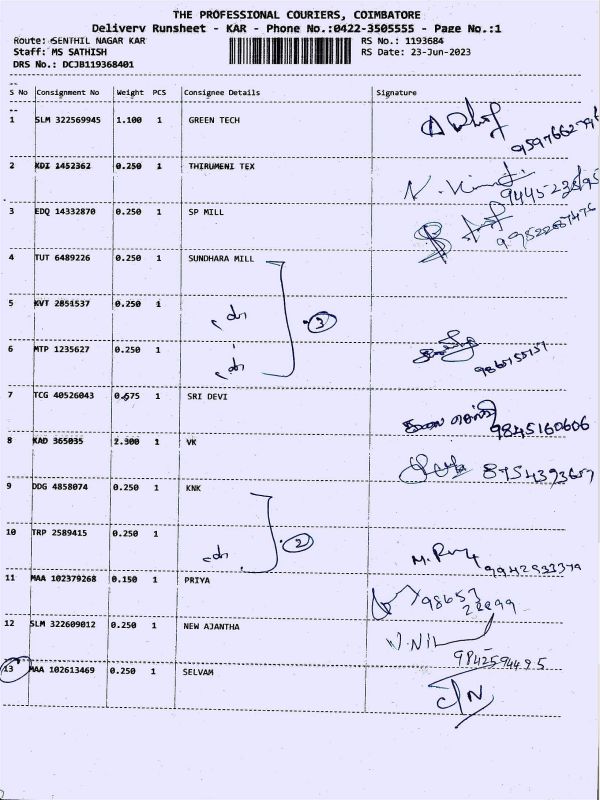 THE PROFESSIONAL COURIERS, COIMBATORE
Delivery Runsheet - KAR - Phone No.:0422-3505555 - Page No.:1
Route: SENTHIL NAGAR KAR RS No.: 1193684
Staff: MS SATHISH RS Date: 23-Jun-2023
DRS No.: DCJB119368401
S No Consignment No Weight PCS Consignee Details Signature
1 SLM 322569945 1.100 1 GREEN TECH
2 KDI 1452362 0.250 1 THIRUMENI TEX
3 EDQ 14332870 0.250 1 SP MILL
4 TUT 6489226 0.250 1 SUNDHARA MILL
5 KVT 2851537 0.250 1
3
6 MTP 1235627 0.250 1
7 TCG 40526043 0.675 1 SRI DEVI
9845160606
8 KAD 365035 2.300 1 VK
8754393657
9 DDG 4858074 0.250 1 KNK
10 TRP 2589415 0.250 1 2
11 MAA 102379268 0.150 1 PRIYA
12 SLM 322609012 0.250 1 NEW AJANTHA
9842594495
13 MAA 102613469 0.250 1 SELVAM